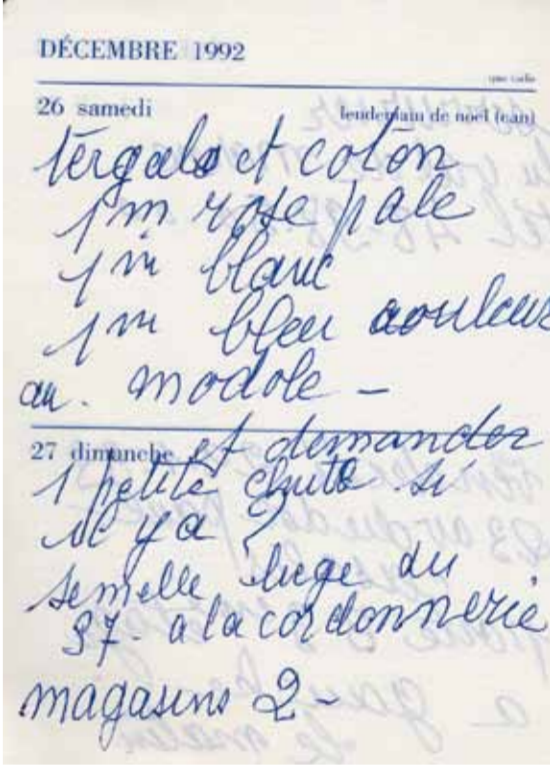 DÉCEMBRE 1992
26 samedi
lendemain de noël (can)
tergals et coton
1 m rose pale
1 m blanc
1 m bleu couleur
au. modole -
27 dimanche et demander
1 petite chute si
il y a ?
semelle liege du
37 - a la cordonnerie
magasins 2 -